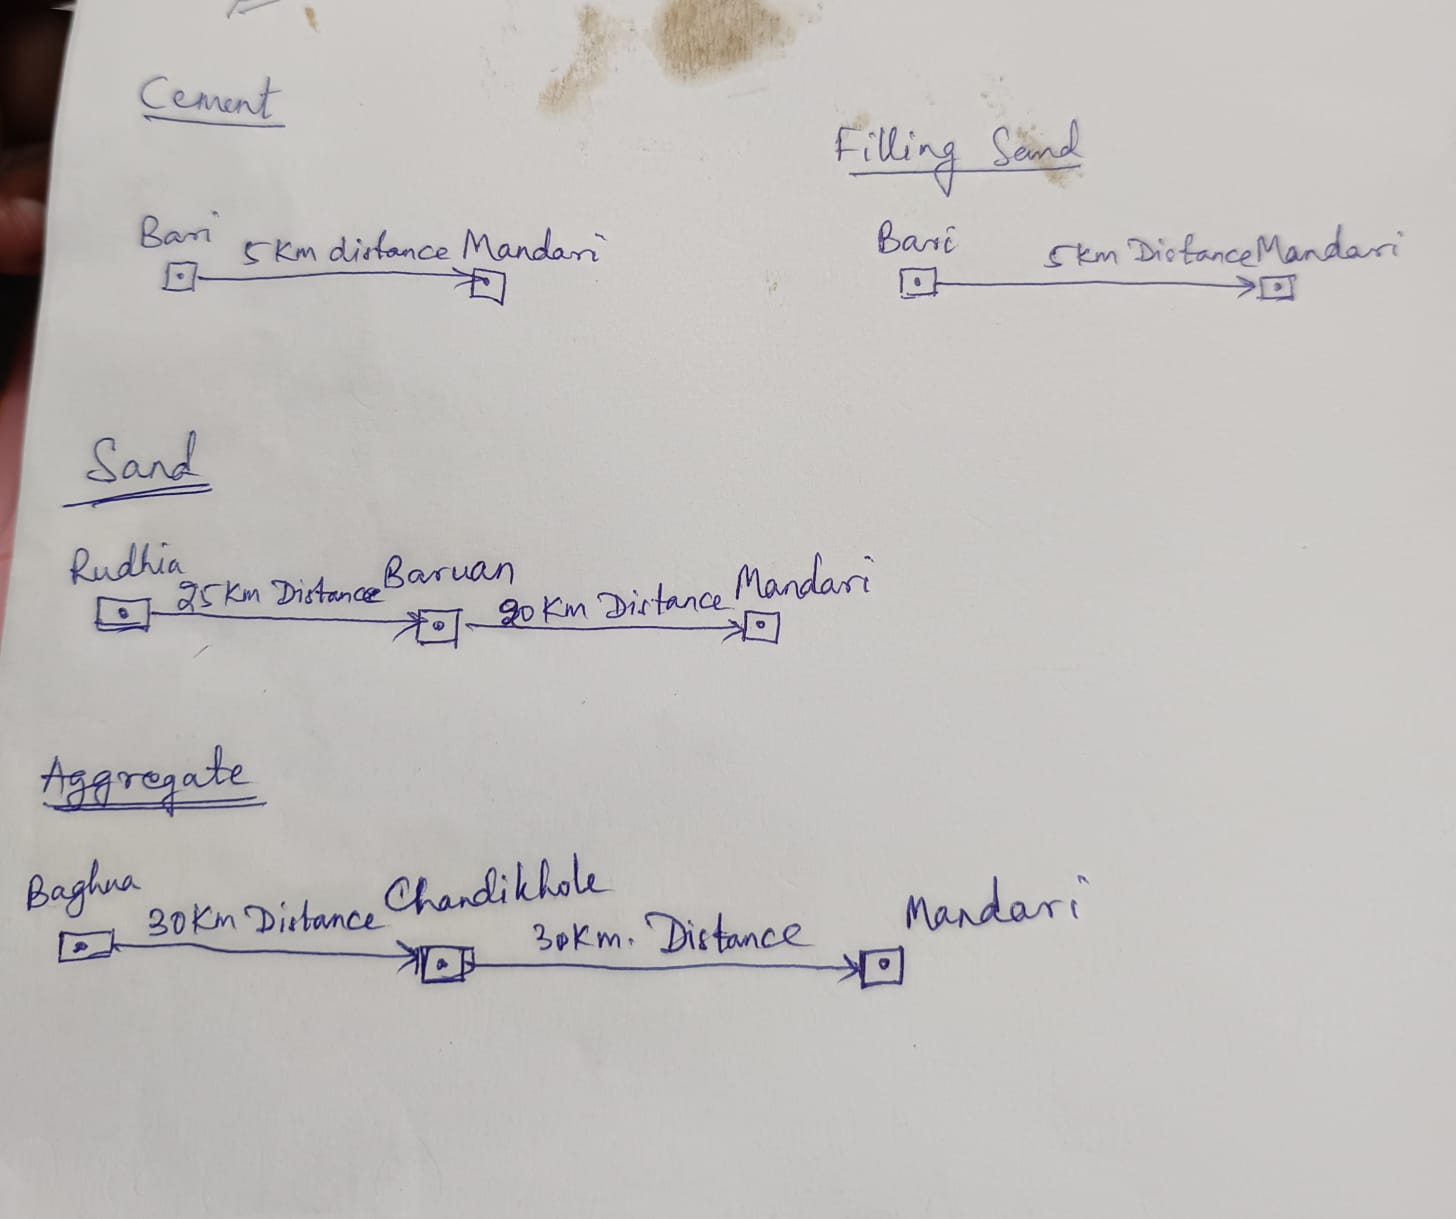 Cement
Filling Sand
Bari 5 Km distance Mandari
Bari 5 km Distance Mandari
Sand
Rudhia 25 Km Distance Baruan 20 Km Distance Mandari
Aggregate
Baghua 30 Km Distance Chandikhole 30 Km. Distance Mandari